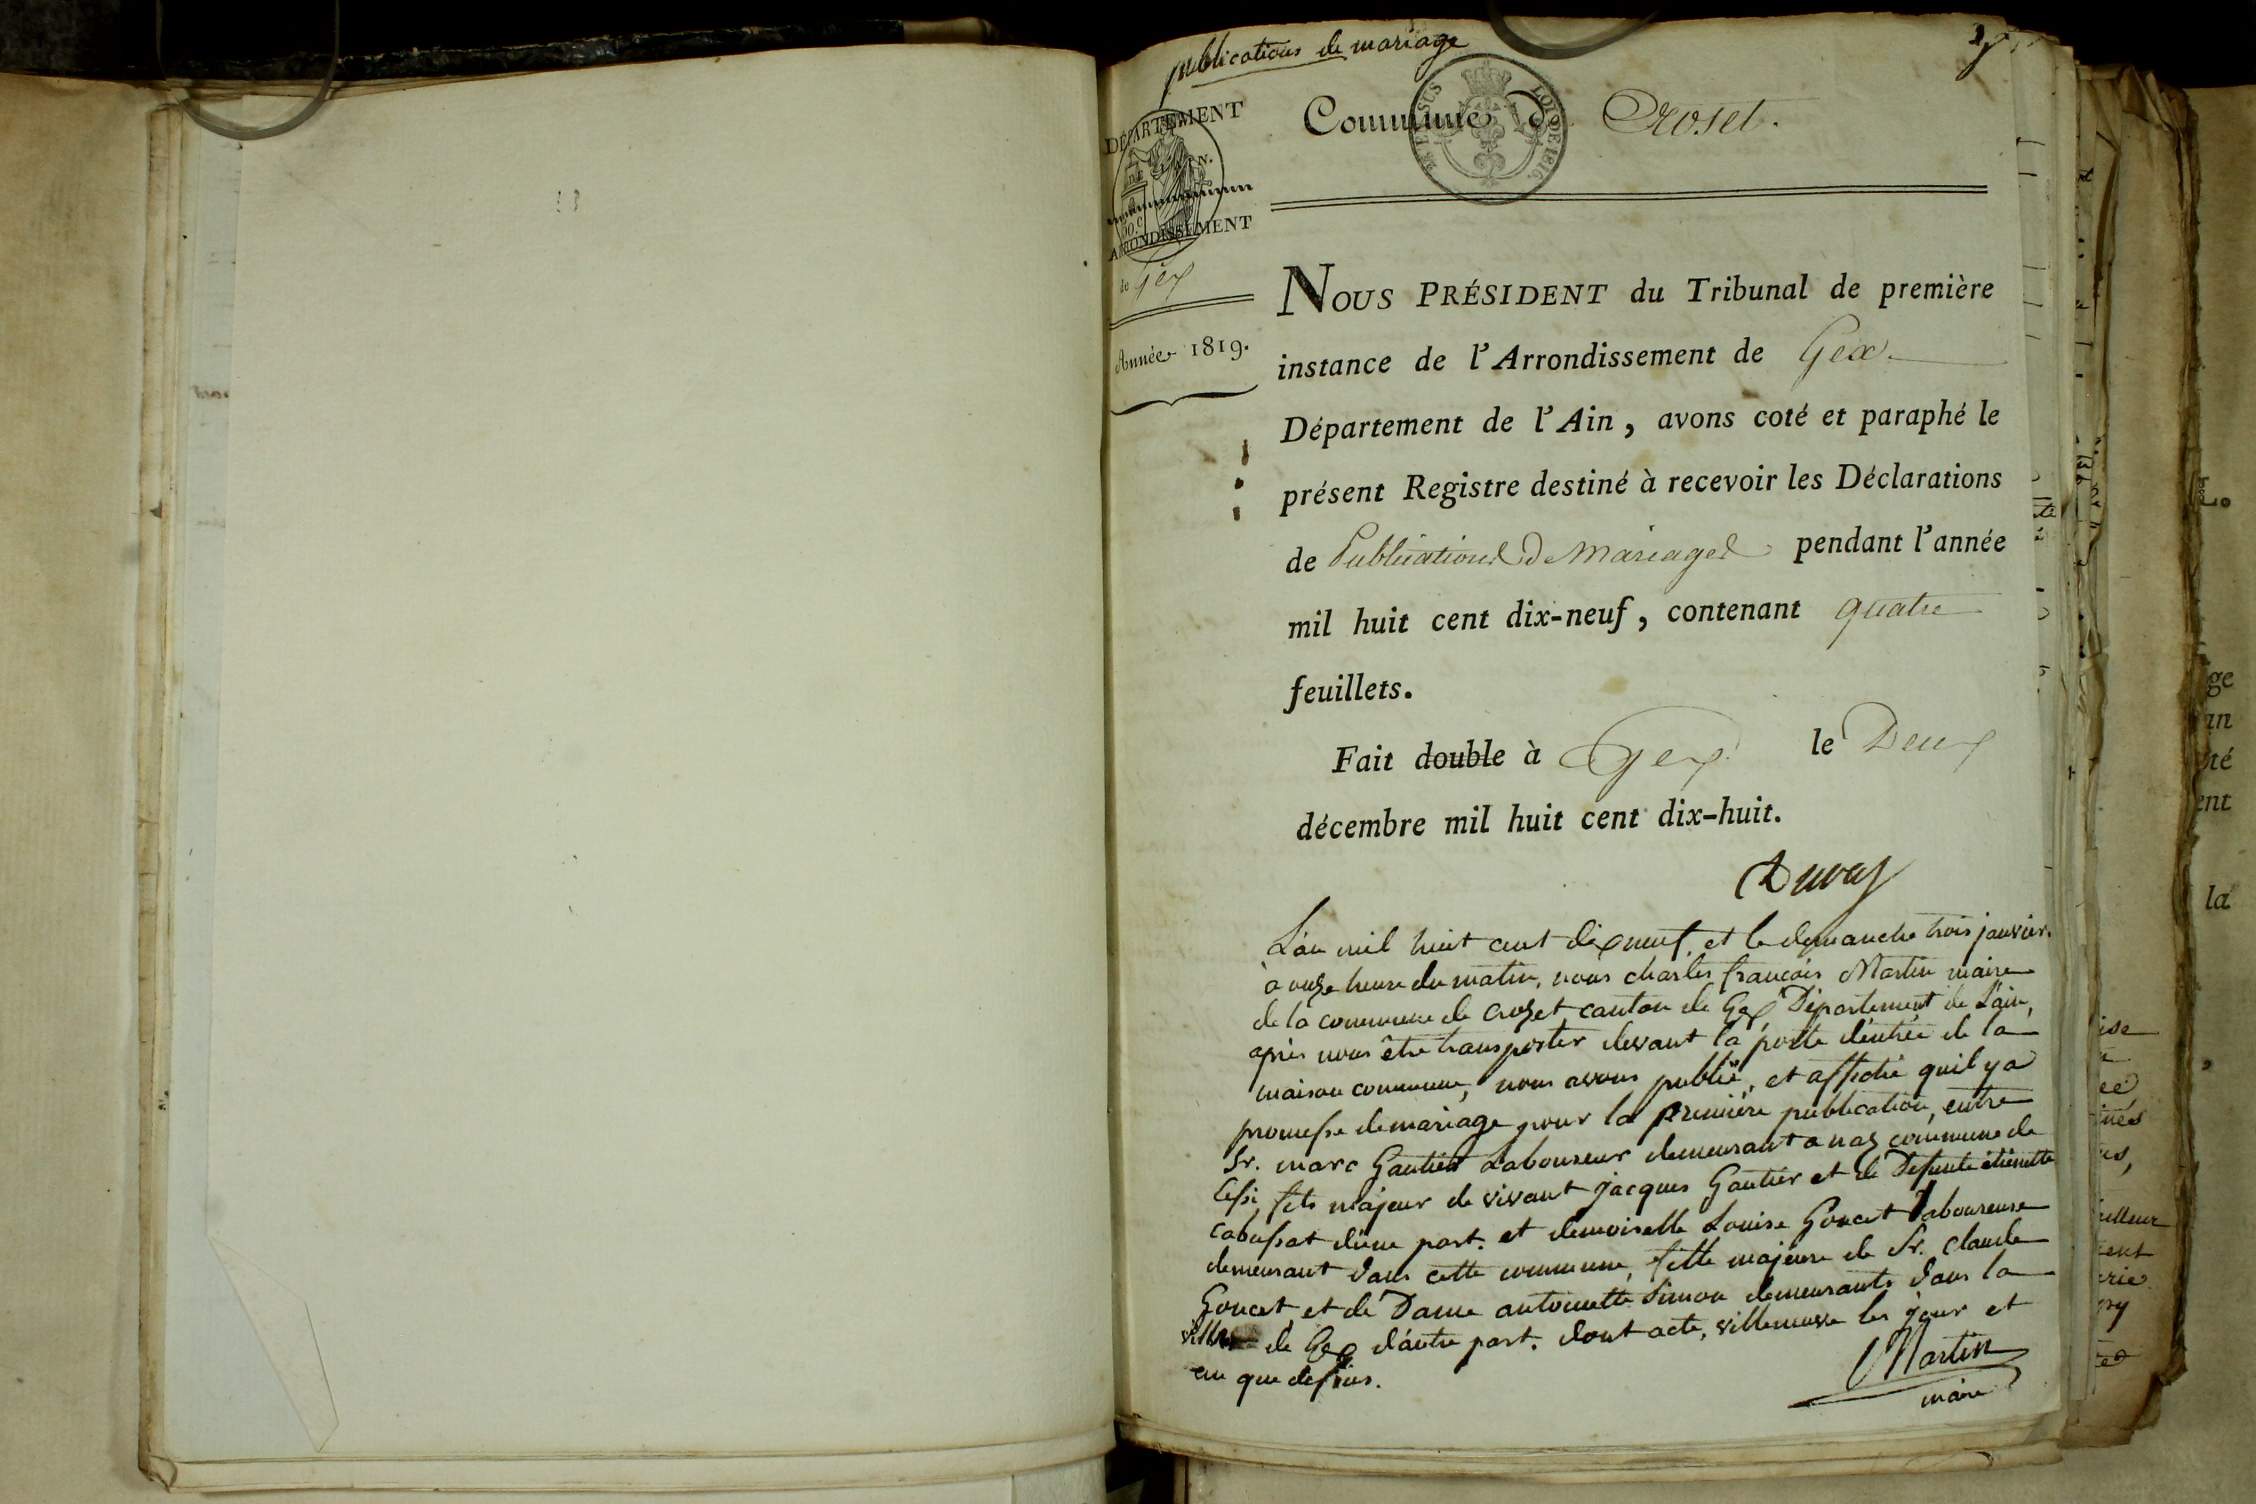 publications de mariage
DÉPARTEMENT
DE
L'AIN.
ARRONDISSEMENT
de Gex
Année 1819.
Commune de Croset.
EN SUS
LOI DE 1816.
NOUS PRÉSIDENT du Tribunal de première
instance de l'Arrondissement de Gex
Département de l'Ain, avons coté et paraphé le
présent Registre destiné à recevoir les Déclarations
de Publications De Mariages pendant l'année
mil huit cent dix-neuf, contenant quatre
feuillets.
Fait double à Gex le Deux
décembre mil huit cent dix-huit.
L'an mil huit cent dix neuf, et le dimanche trois janvier
à onze heure du matin, nous charles françois Martin maire
de la commune de crozet canton de Gex Département de L'ain,
après nous être transporter devant la porte d'entrée de la
maison commune, nous avons publié, et affiché qu'il y a
promesse de mariage pour la première publication, entre
Sr. marc Gautier Laboureur demeurant a naz commune de
fils majeur de vivant jacques Gautier et de Defunte étiennette
d'une part. et demoiselle Louise Goncet Laboureuse
demeurant dans cette commune, fille majeure de Sr. Claude
Goncet, et de Dame antoinette Simon demeurants dans la
ville de Gex d'autre part. dont acte, les jour et
an que dessus.
Martin
maire